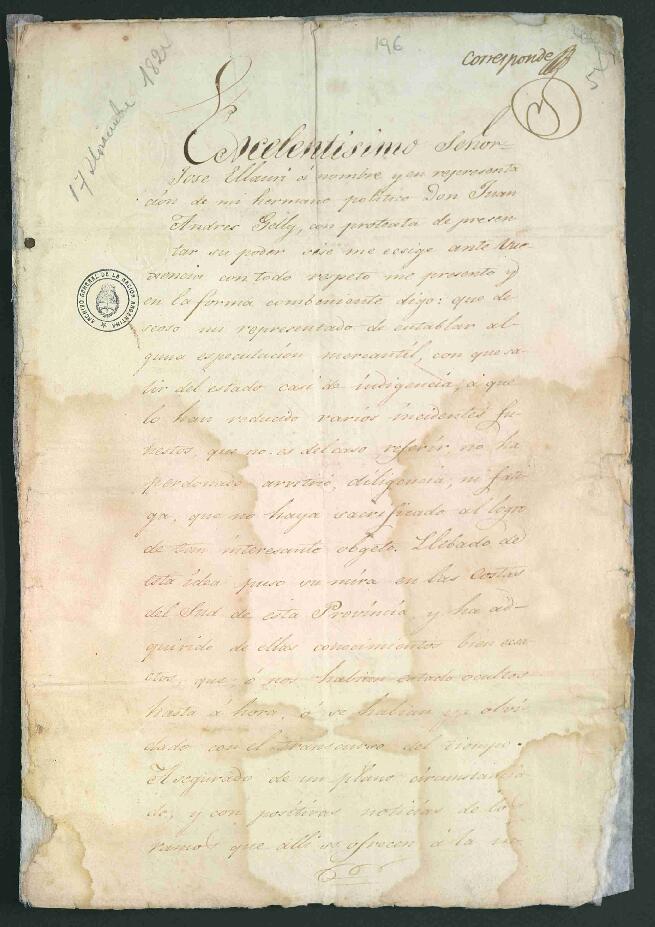 196
Corresponde
17 Diciembre 182
Excelentisimo Señor
Jose Ellauri á nombre y en representa
ción de mi hermano politico Don Juan
Andres Gelly, con protesta de presen-
tar su poder sise me ecsige ante Vue
cxencia con todo respeto me presento y
en la forma combeniente digo: que de
seoso mi representado de entablar al-
guna especulacion mercantil, con que sa-
lir del estado casi de indigencia, á que
lo han reducido varios incidentes fu
nestos, que no es del caso referir, no ha
perdonado arvitrio, diligencia, ni fati-
ga, que no haya sacrificado al logro
de tan interesante obgeto. Llebado de
esta idea puso su mira en las Costas
del Sud de esta Provincia, y ha ad-
quirido de ellas conocimientos bien ecsa-
ctos, que, ó nos habian estado ocultos
hasta á hora, ó se habian ya olvi
dado con el transcurso del tiempo.
Asegurado de un plano circunstancia
do, y con positivas noticias de los
ramos que alli se ofrecen á la in
ARCHIVO GENERAL DE LA NACION ARGENTINA